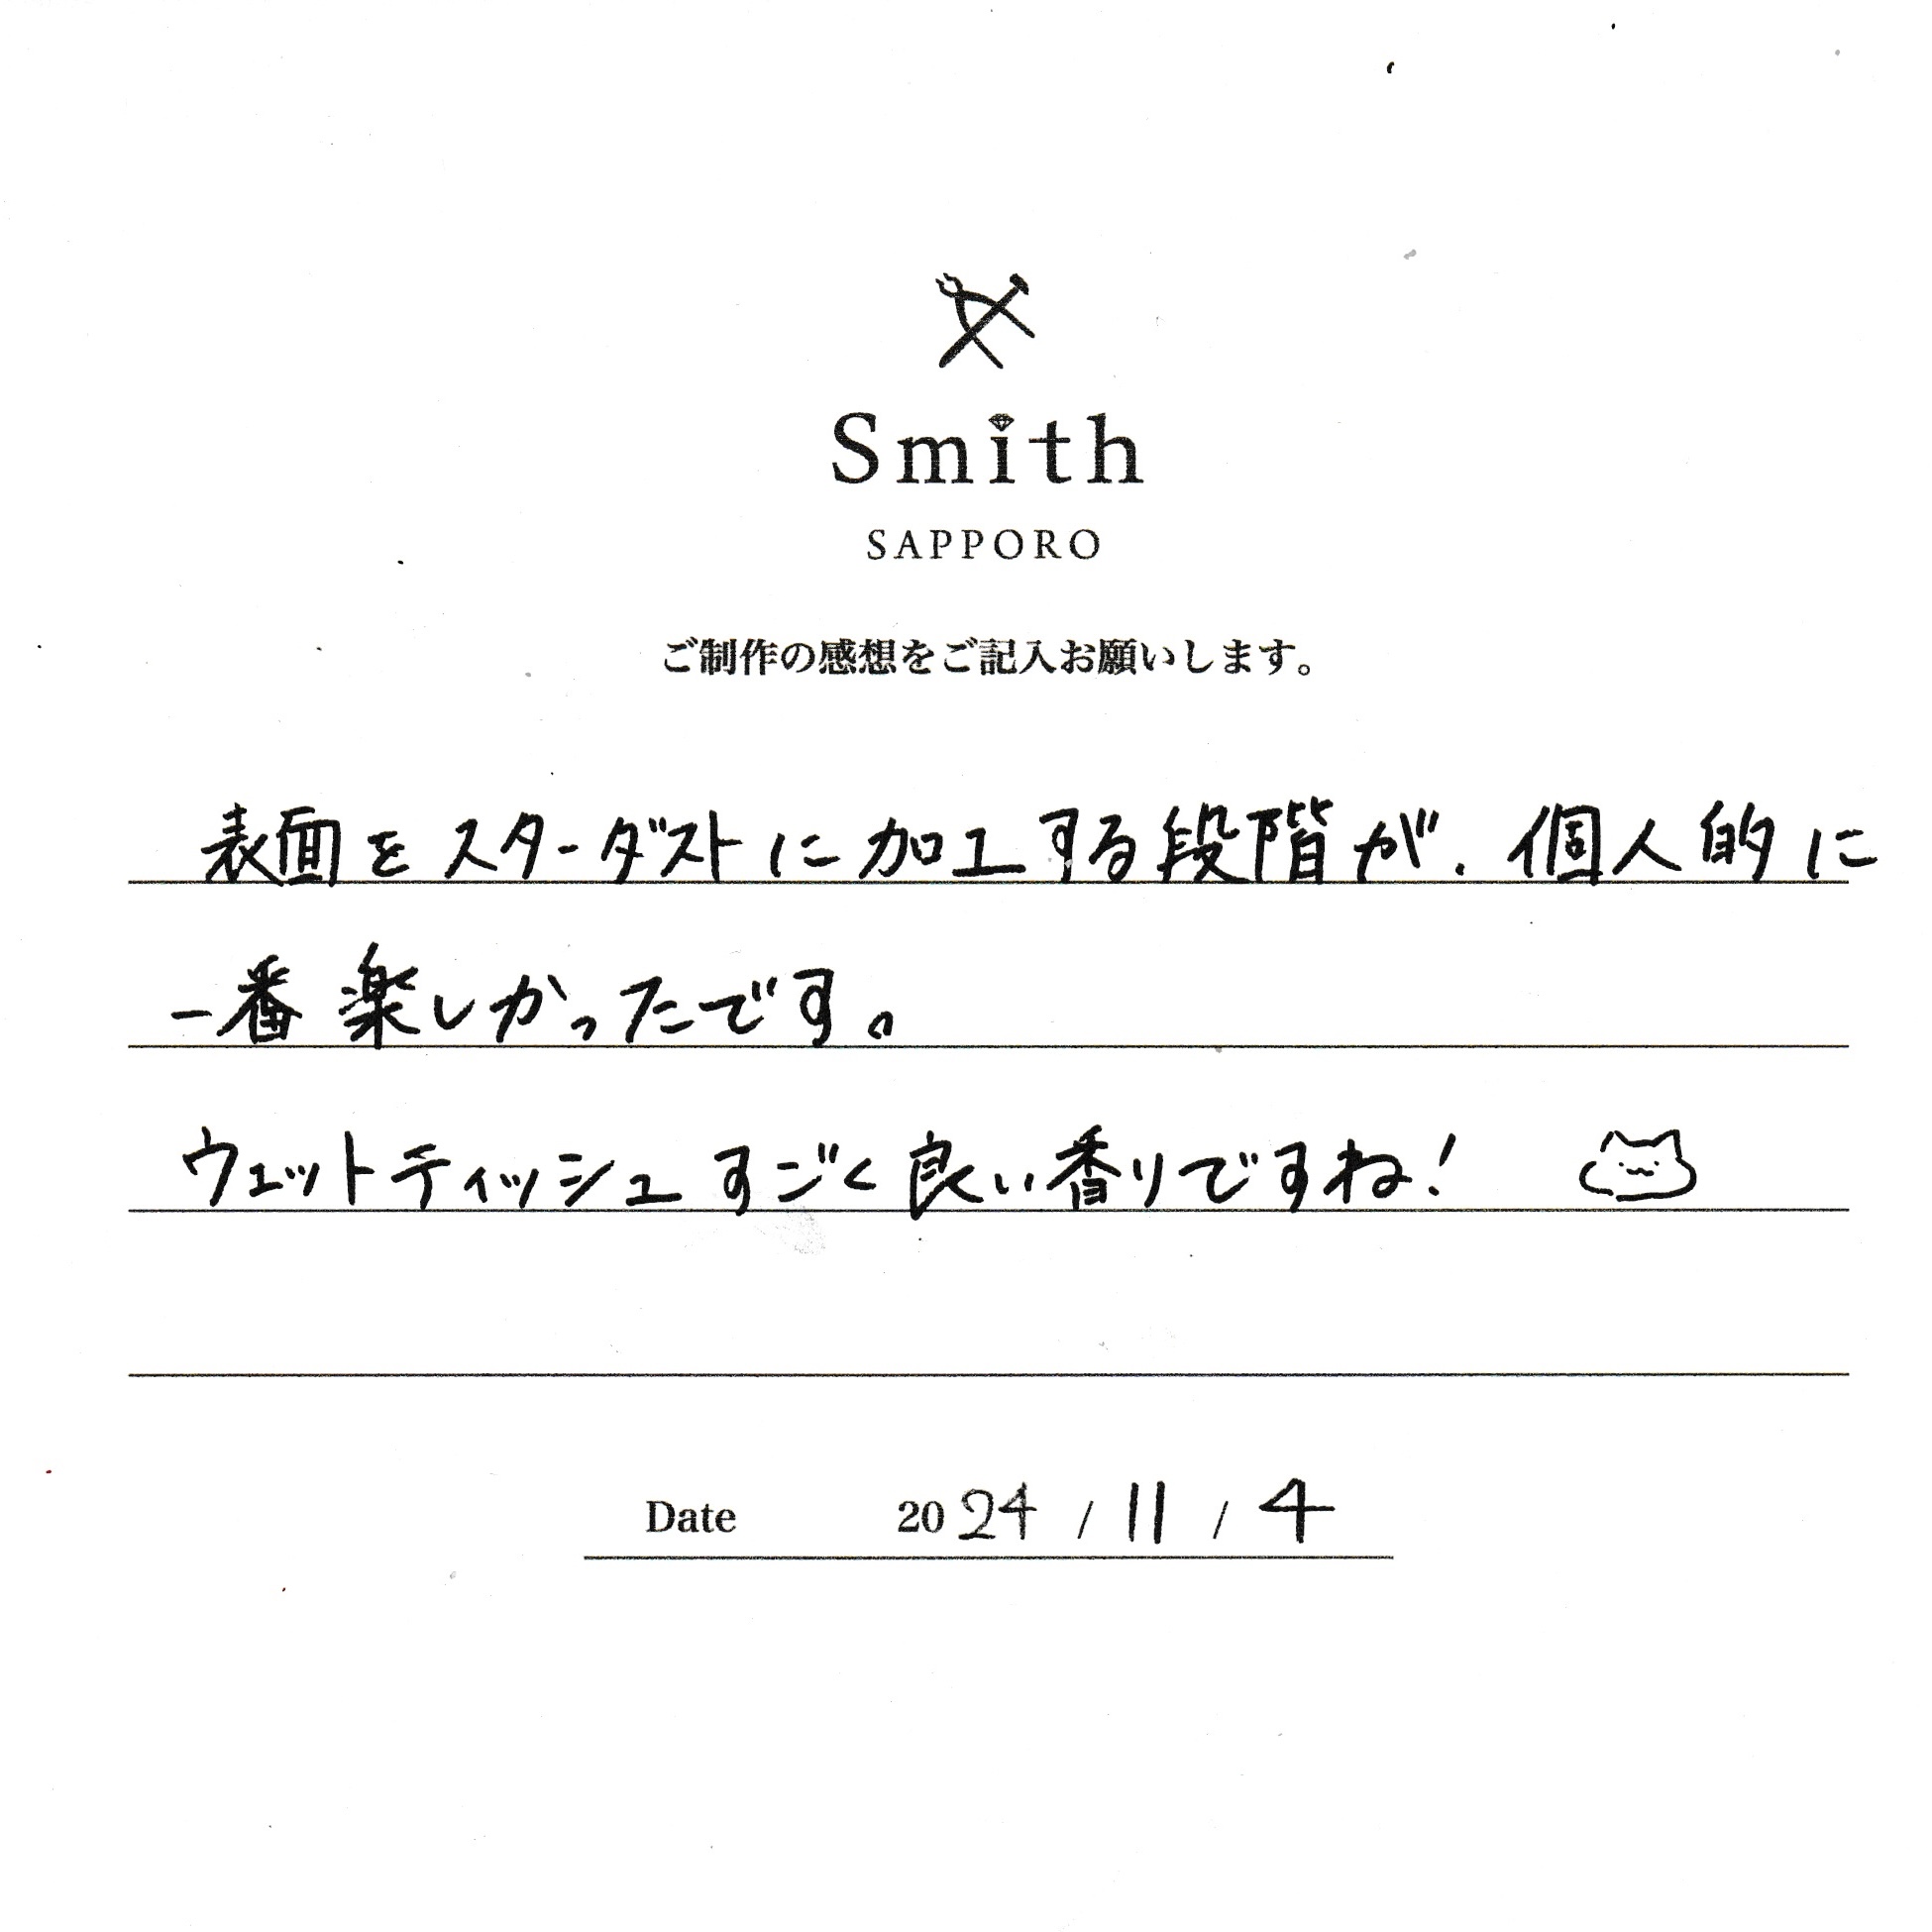 Smith
SAPPORO
ご制作の感想をご記入お願いします。
表面をスターダストに加工する段階が、個人的に
一番楽しかったです。
ウェットティッシュすごく良い香りですね!
Date 2024 / 11 / 4